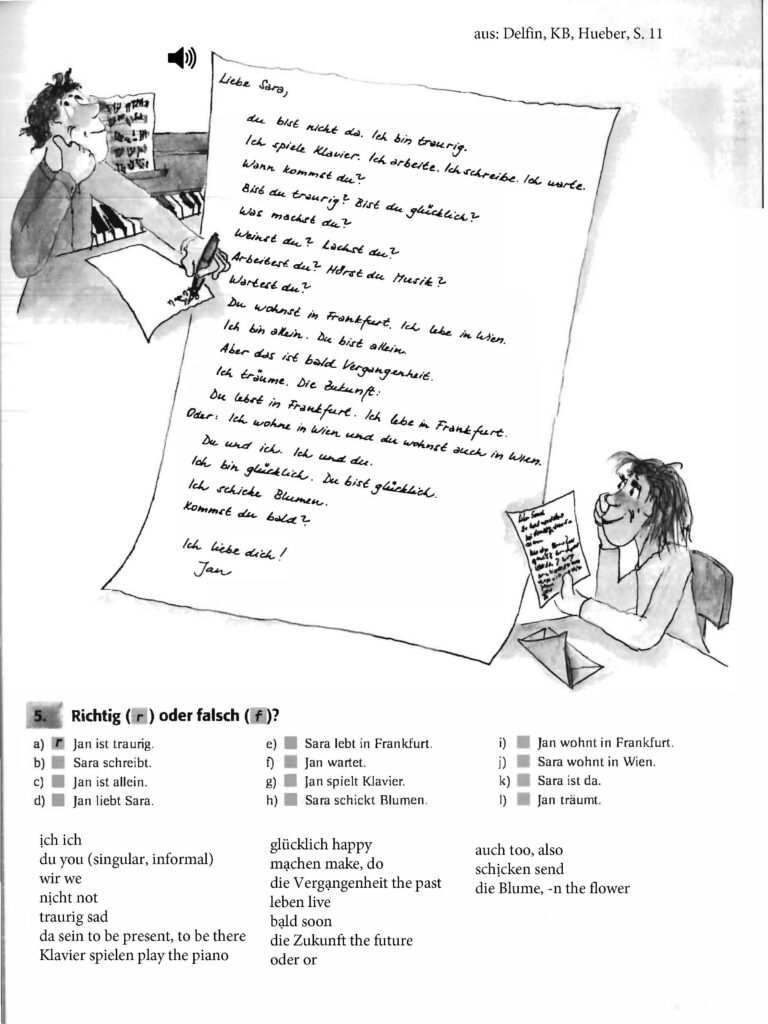 aus: Delfin, KB, Hueber, S. 11
Liebe Sara,
du bist nicht da. Ich bin traurig.
Ich spiele Klavier. Ich arbeite. Ich schreibe. Ich warte.
Wann kommst du?
Bist du traurig? Bist du glücklich?
Was machst du?
Weinst du? Lachst du?
Arbeitest du? Hörst du Musik?
Wartest du?
Du wohnst in Frankfurt. Ich lebe in Wien.
Ich bin allein. Du bist allein.
Aber das ist bald Vergangenheit.
Ich träume. Die Zukunft:
Du lebst in Frankfurt. Ich lebe in Frankfurt.
Oder: Ich wohne in Wien und du wohnst auch in Wien.
Du und ich. Ich und du.
Ich bin glücklich. Du bist glücklich.
Ich schicke Blumen.
Kommst du bald?
Ich liebe dich!
Jan
5. Richtig (r) oder falsch (f)?
a) r Jan ist traurig.
b) Sara schreibt.
c) Jan ist allein.
d) Jan liebt Sara.
e) Sara lebt in Frankfurt.
f) Jan wartet.
g) Jan spielt Klavier.
h) Sara schickt Blumen.
i) Jan wohnt in Frankfurt.
j) Sara wohnt in Wien.
k) Sara ist da.
l) Jan träumt.
ịch ich
du you (singular, informal)
wir we
nịcht not
traurig sad
da sein to be present, to be there
Klavier spielen play the piano
glücklich happy
mạchen make, do
die Vergạngenheit the past
leben live
bạld soon
die Zukunft the future
oder or
auch too, also
schịcken send
die Blume, -n the flower